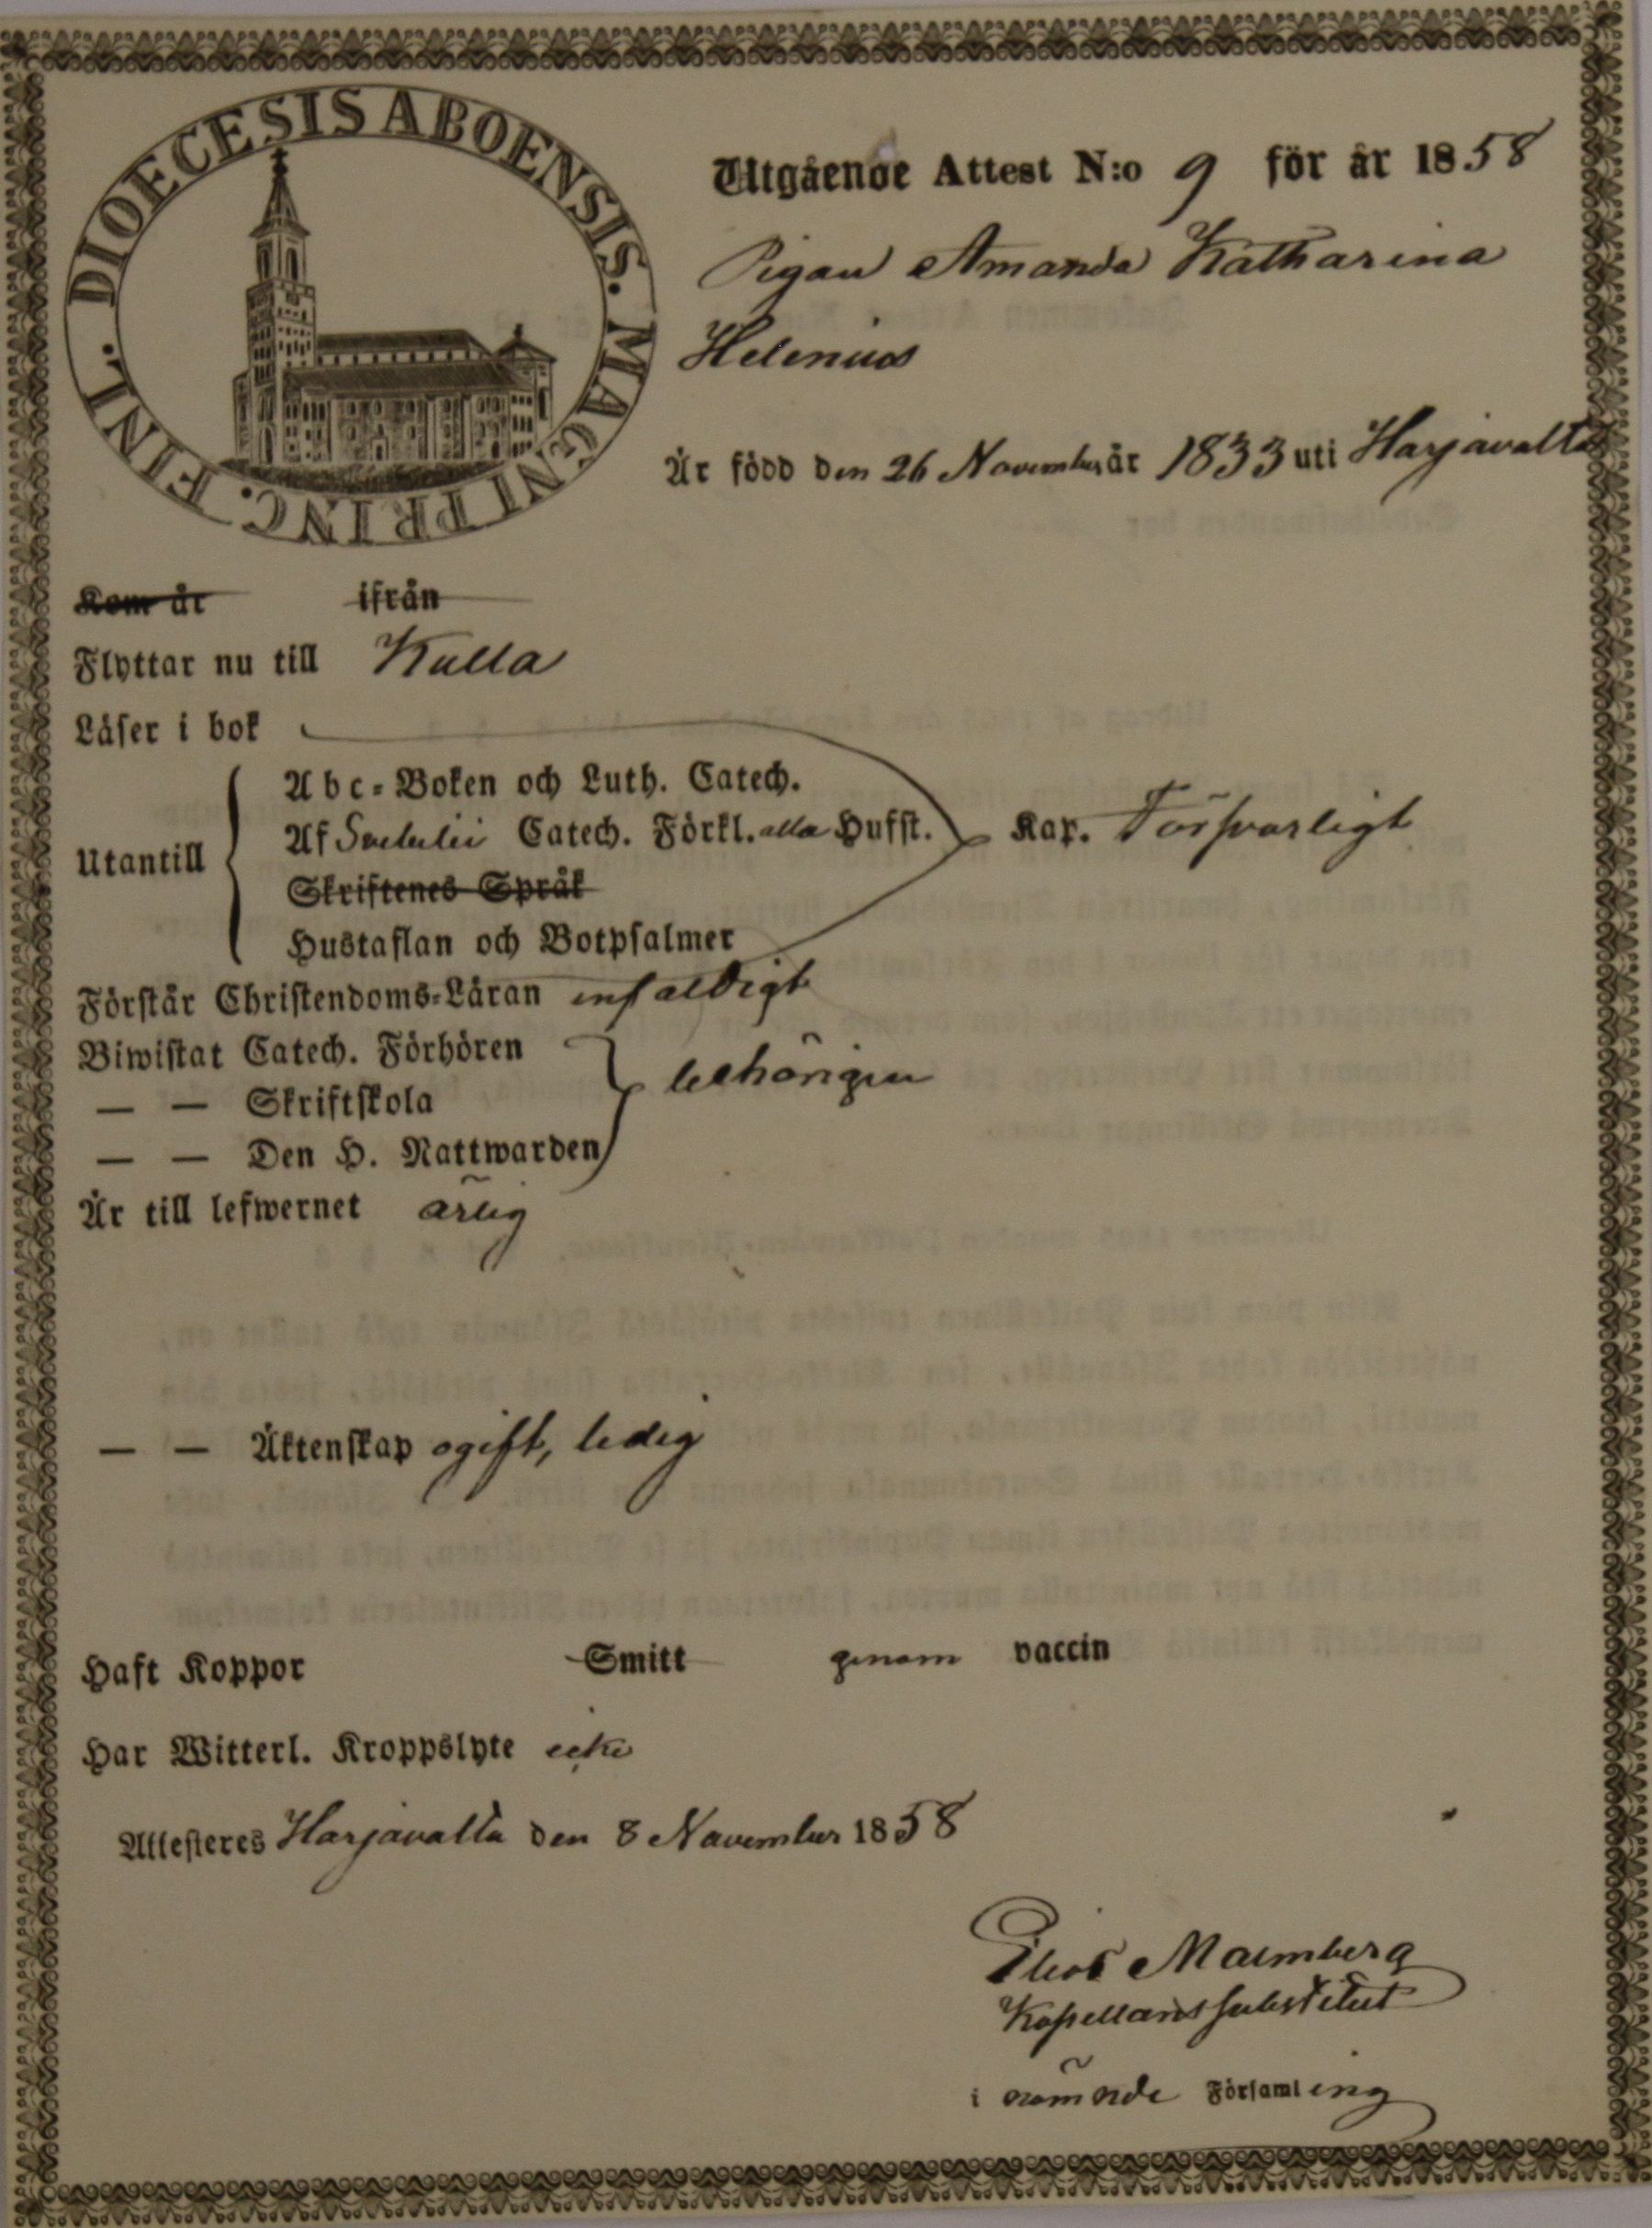 DIOECESIS ABOENSIS. MAGNI PRINC. FINL.
Utgående Attest N:o 9 för år 1858
Pigan Amanda Katharina
Helenius
Är född den 26 November år 1833 uti Harjavalta
Kom år ifrån
Flyttar nu till Kulla
Läser i bok
Utantill
Abc-Boken och Luth. Catech.
Af Svebelii Catech. Förkl. alla Hufst.
Kap. Försvarligt
Skriftenes Språk
Hustaflan och Botpsalmer
Förstår Christendoms-Läran enfaldigt
Biwistat Catech. Förhören
behörigen
— — Skriftskola
— — Den H. Nattwarden
Är till lefwernet ärlig
— — Äktenskap ogift, ledig
Haft Koppor Smitt genom vaccin
Har Witterl. Kroppslyte icke
Attesteres Harjavalta den 8 November 1858
Malmberg
Kapellanssubstitut
i nämnde Församling